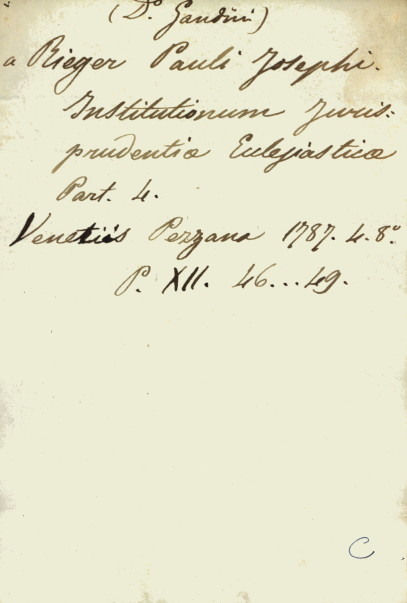 (Dr. Gandini)
a Rieger Pauli Josephi.
Institutionum Juris:
prudentiæ Eclesiasticæ
Part. 4.
Venetiis Pezzana 1787. 4. 8º.
P. XII. 46...49.
C